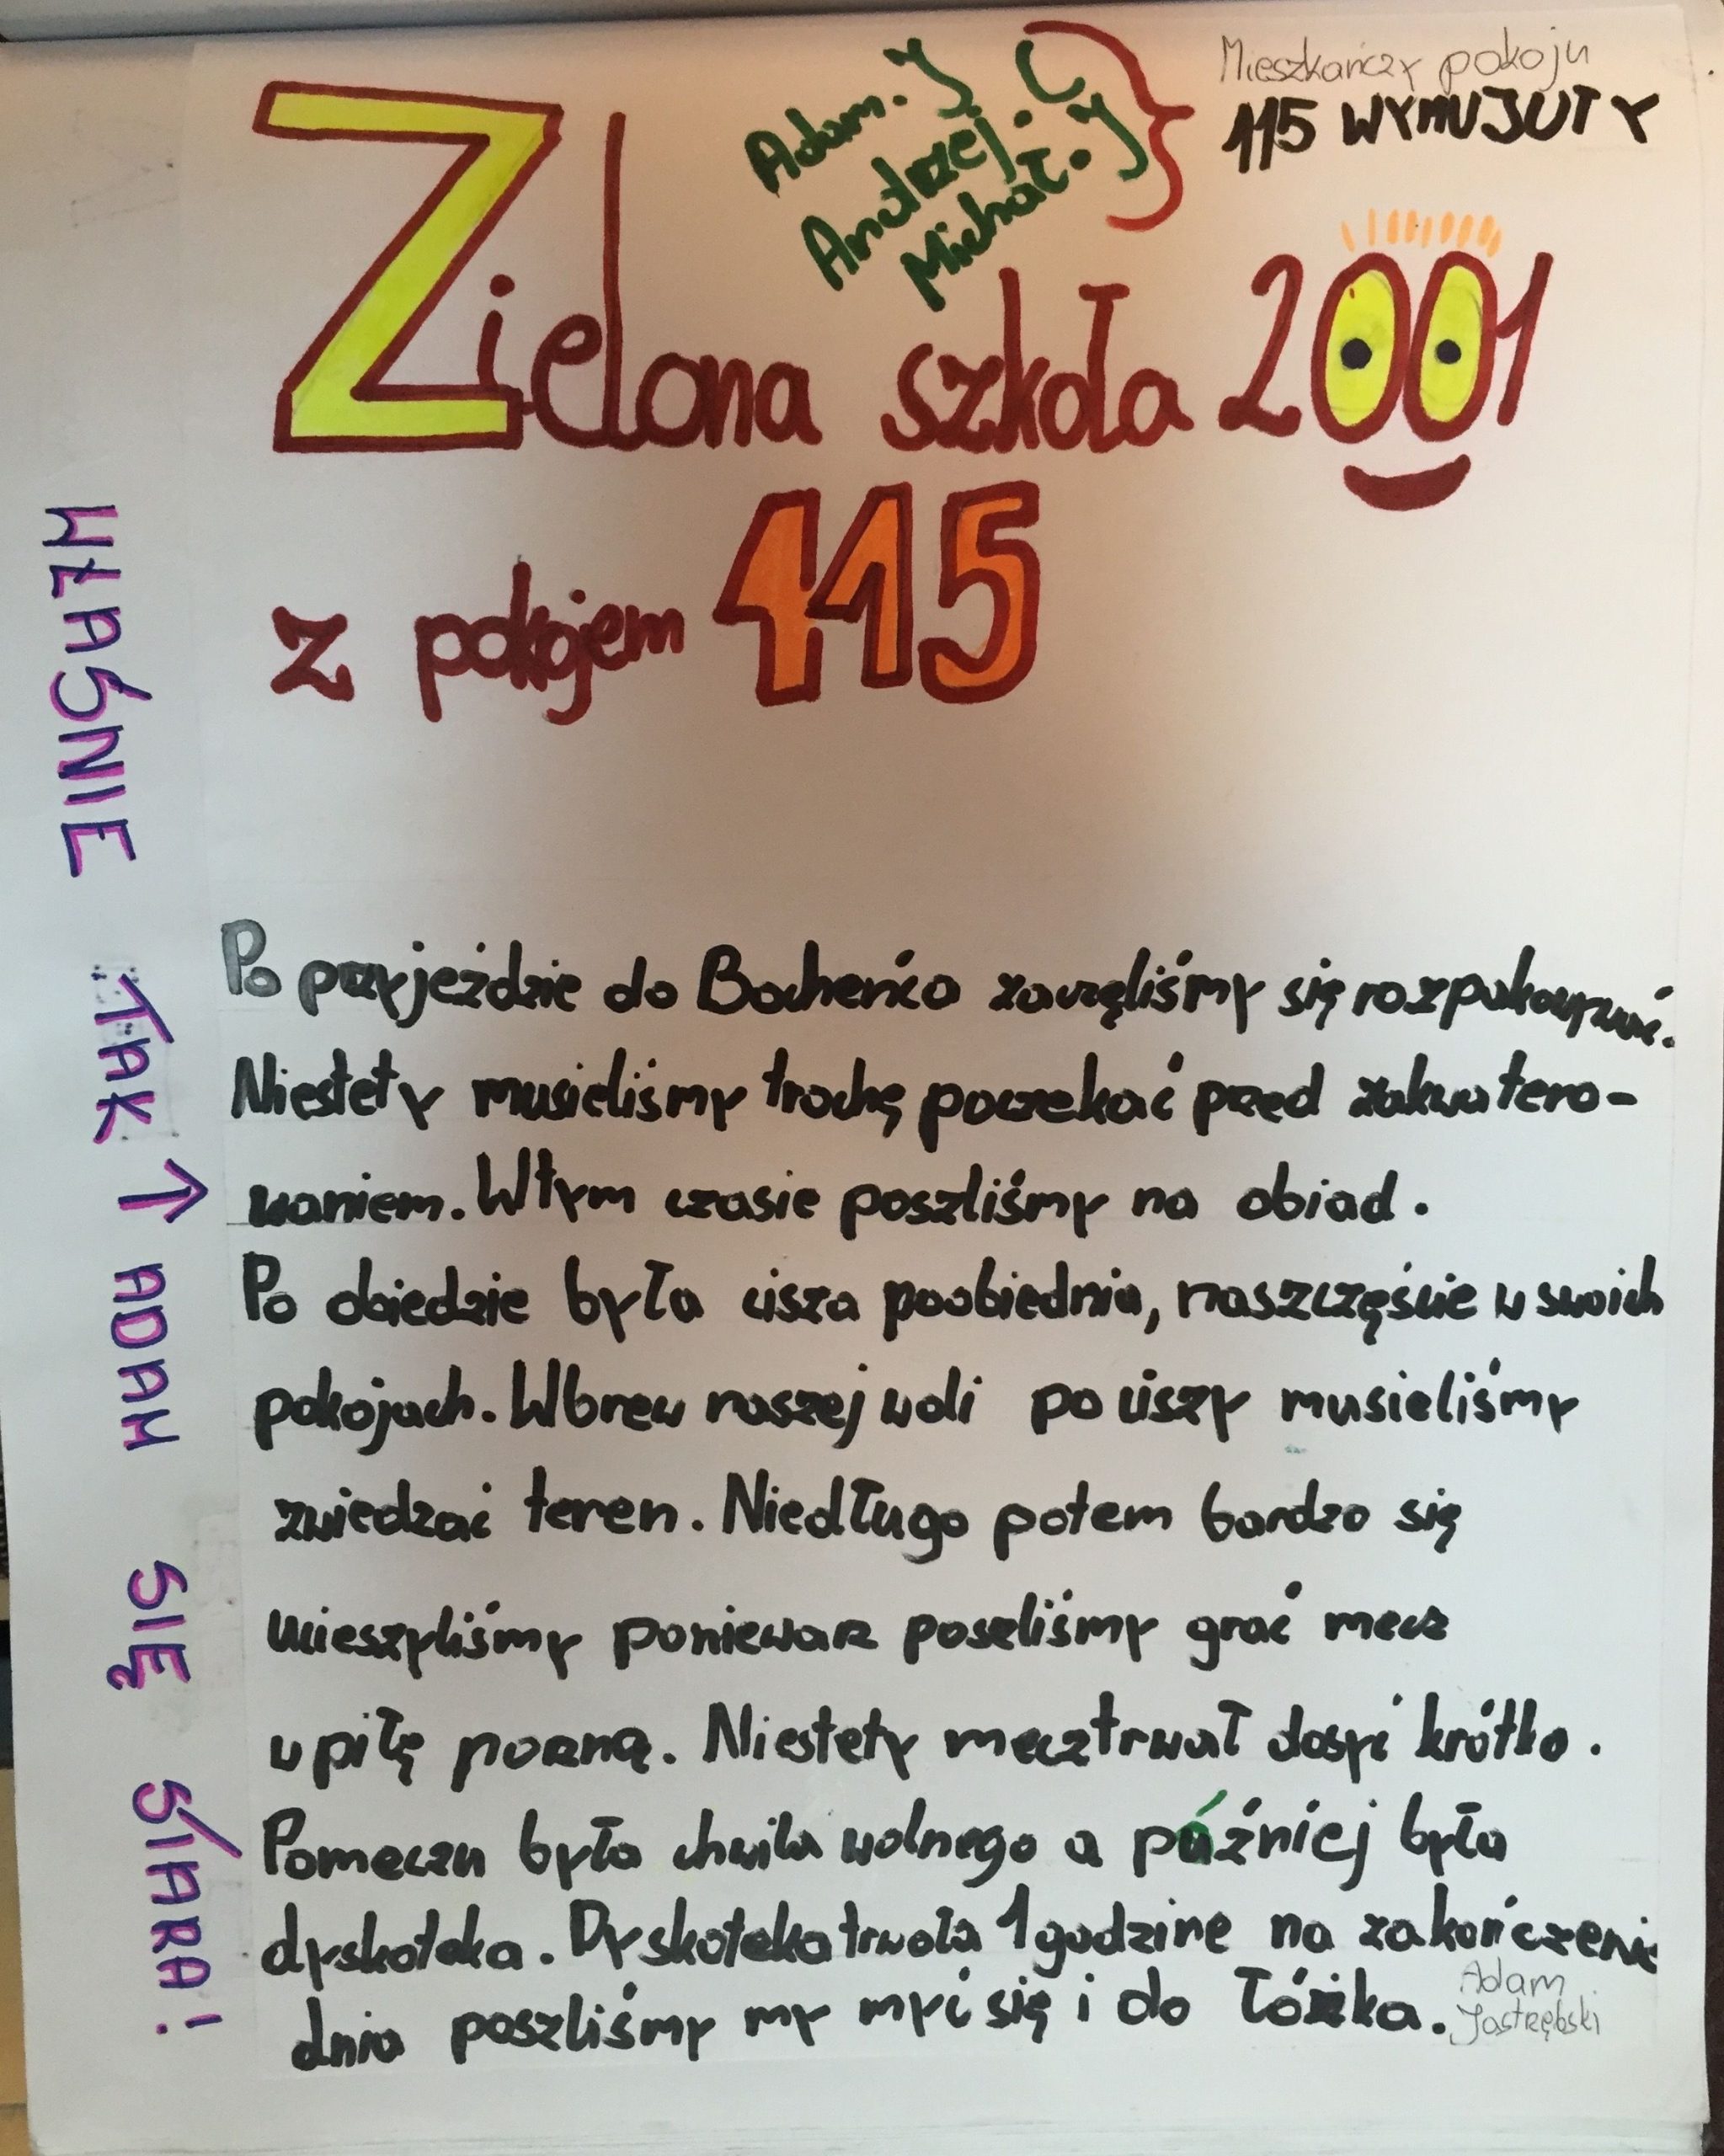 Mieszkańczy pokoju
115 WYMUJUTY
Adam. J
Andrzej. C
Michał. J
Zielona szkoła 2001
z pokojem 115
Po przyjeździe do Bocheńca zaczęliśmy się rozpakowywać.
Niestety musieliśmy trochę poczekać przed zakwatero-
waniem. Wtym czasie poszliśmy na obiad.
Po obiedzie była cisza poobiednia, naszczęście w swoich
pokojach. Wbrew naszej woli po ciszy musieliśmy
zwiedzać teren. Niedługo potem bardzo się
ucieszyliśmy poniewarz poszliśmy grać mecz
w piłę norzną. Niestety mecz trwał dosyć krótko.
Pomeczu była chwila wolnego a púźniej była
dyskoteka. Dyskoteka trwała 1 godzine na zakończenie
dnia poszliśmy my myć się i do łóżka.
Adam
Jastrzębski
WŁAŚNIE TAK ↑ ADAM SIĘ STARA!